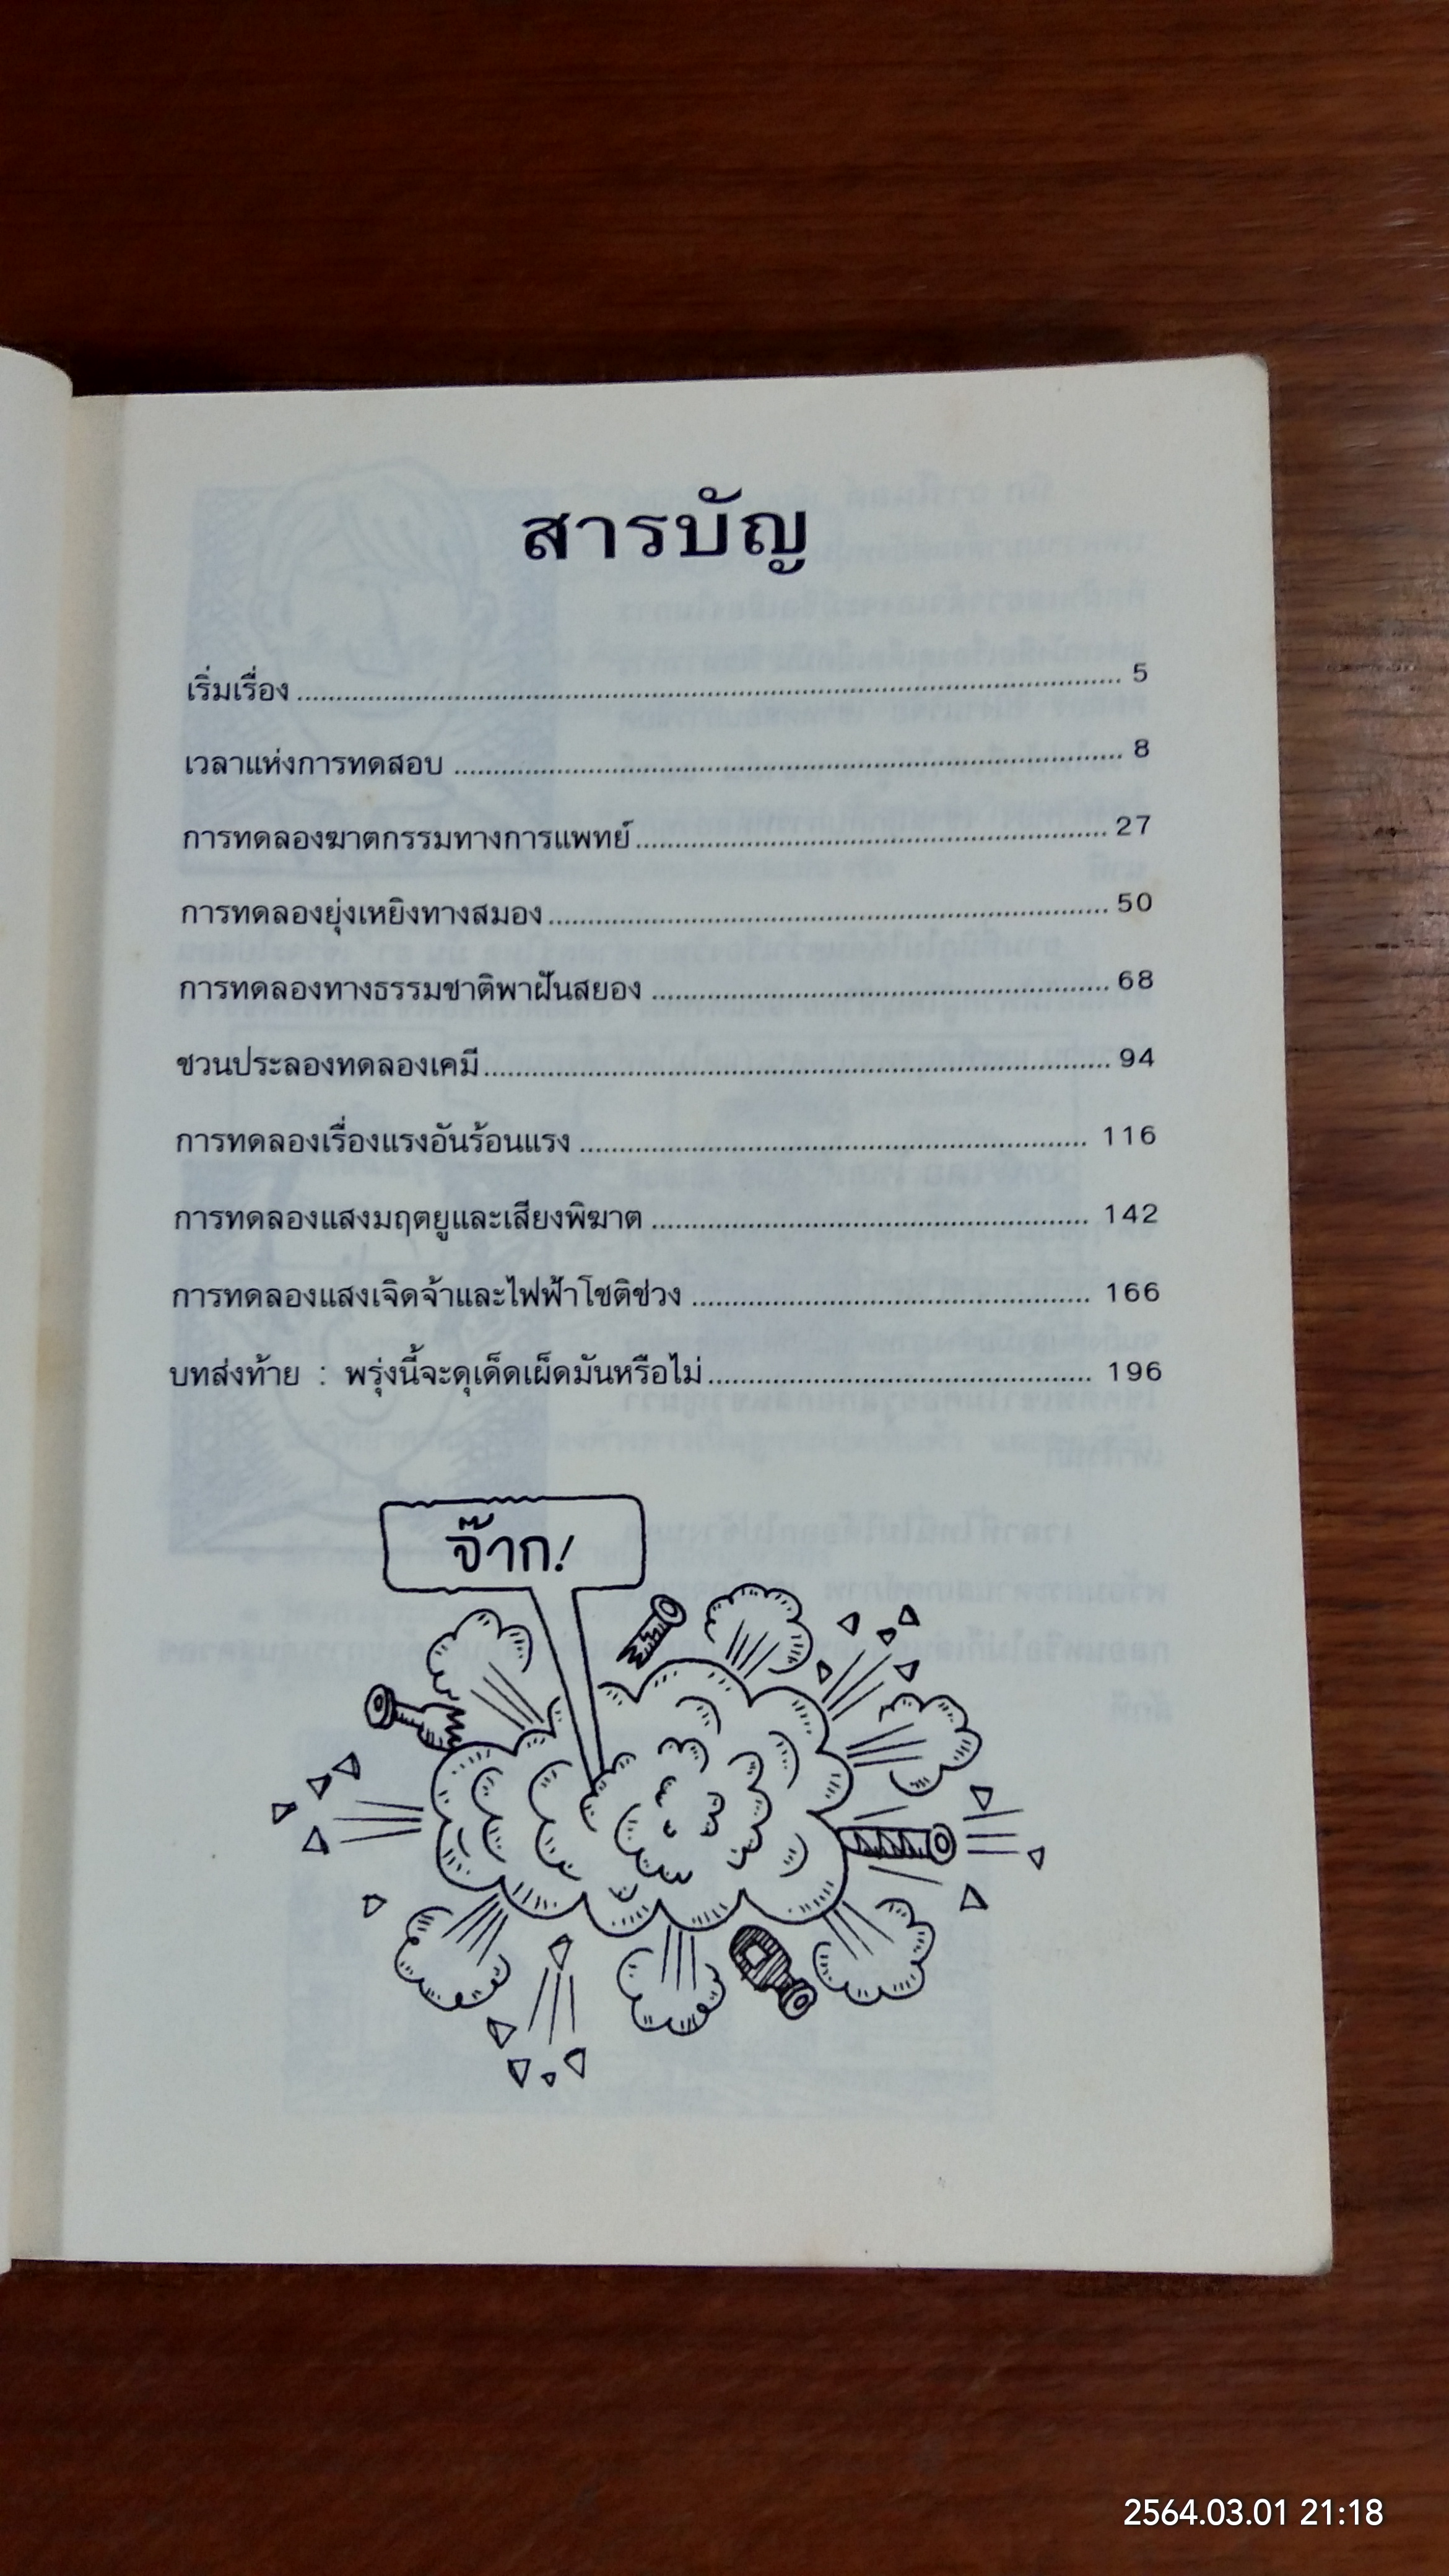 สารบัญ
เริ่มเรื่อง ........ 5
เวลาแห่งการทดสอบ ........ 8
การทดลองฆาตกรรมทางการแพทย์ ........ 27
การทดลองยุ่งเหยิงทางสมอง ........ 50
การทดลองทางธรรมชาติพาฝันสยอง ........ 68
ชวนประลองทดลองเคมี ........ 94
การทดลองเรื่องแรงอันร้อนแรง ........ 116
การทดลองแสงมฤตยูและเสียงพิฆาต ........ 142
การทดลองแสงเจิดจ้าและไฟฟ้าโชติช่วง ........ 166
บทส่งท้าย : พรุ่งนี้จะดุเด็ดเผ็ดมันหรือไม่ ........ 196
จ๊าก!
2564.03.01 21:18